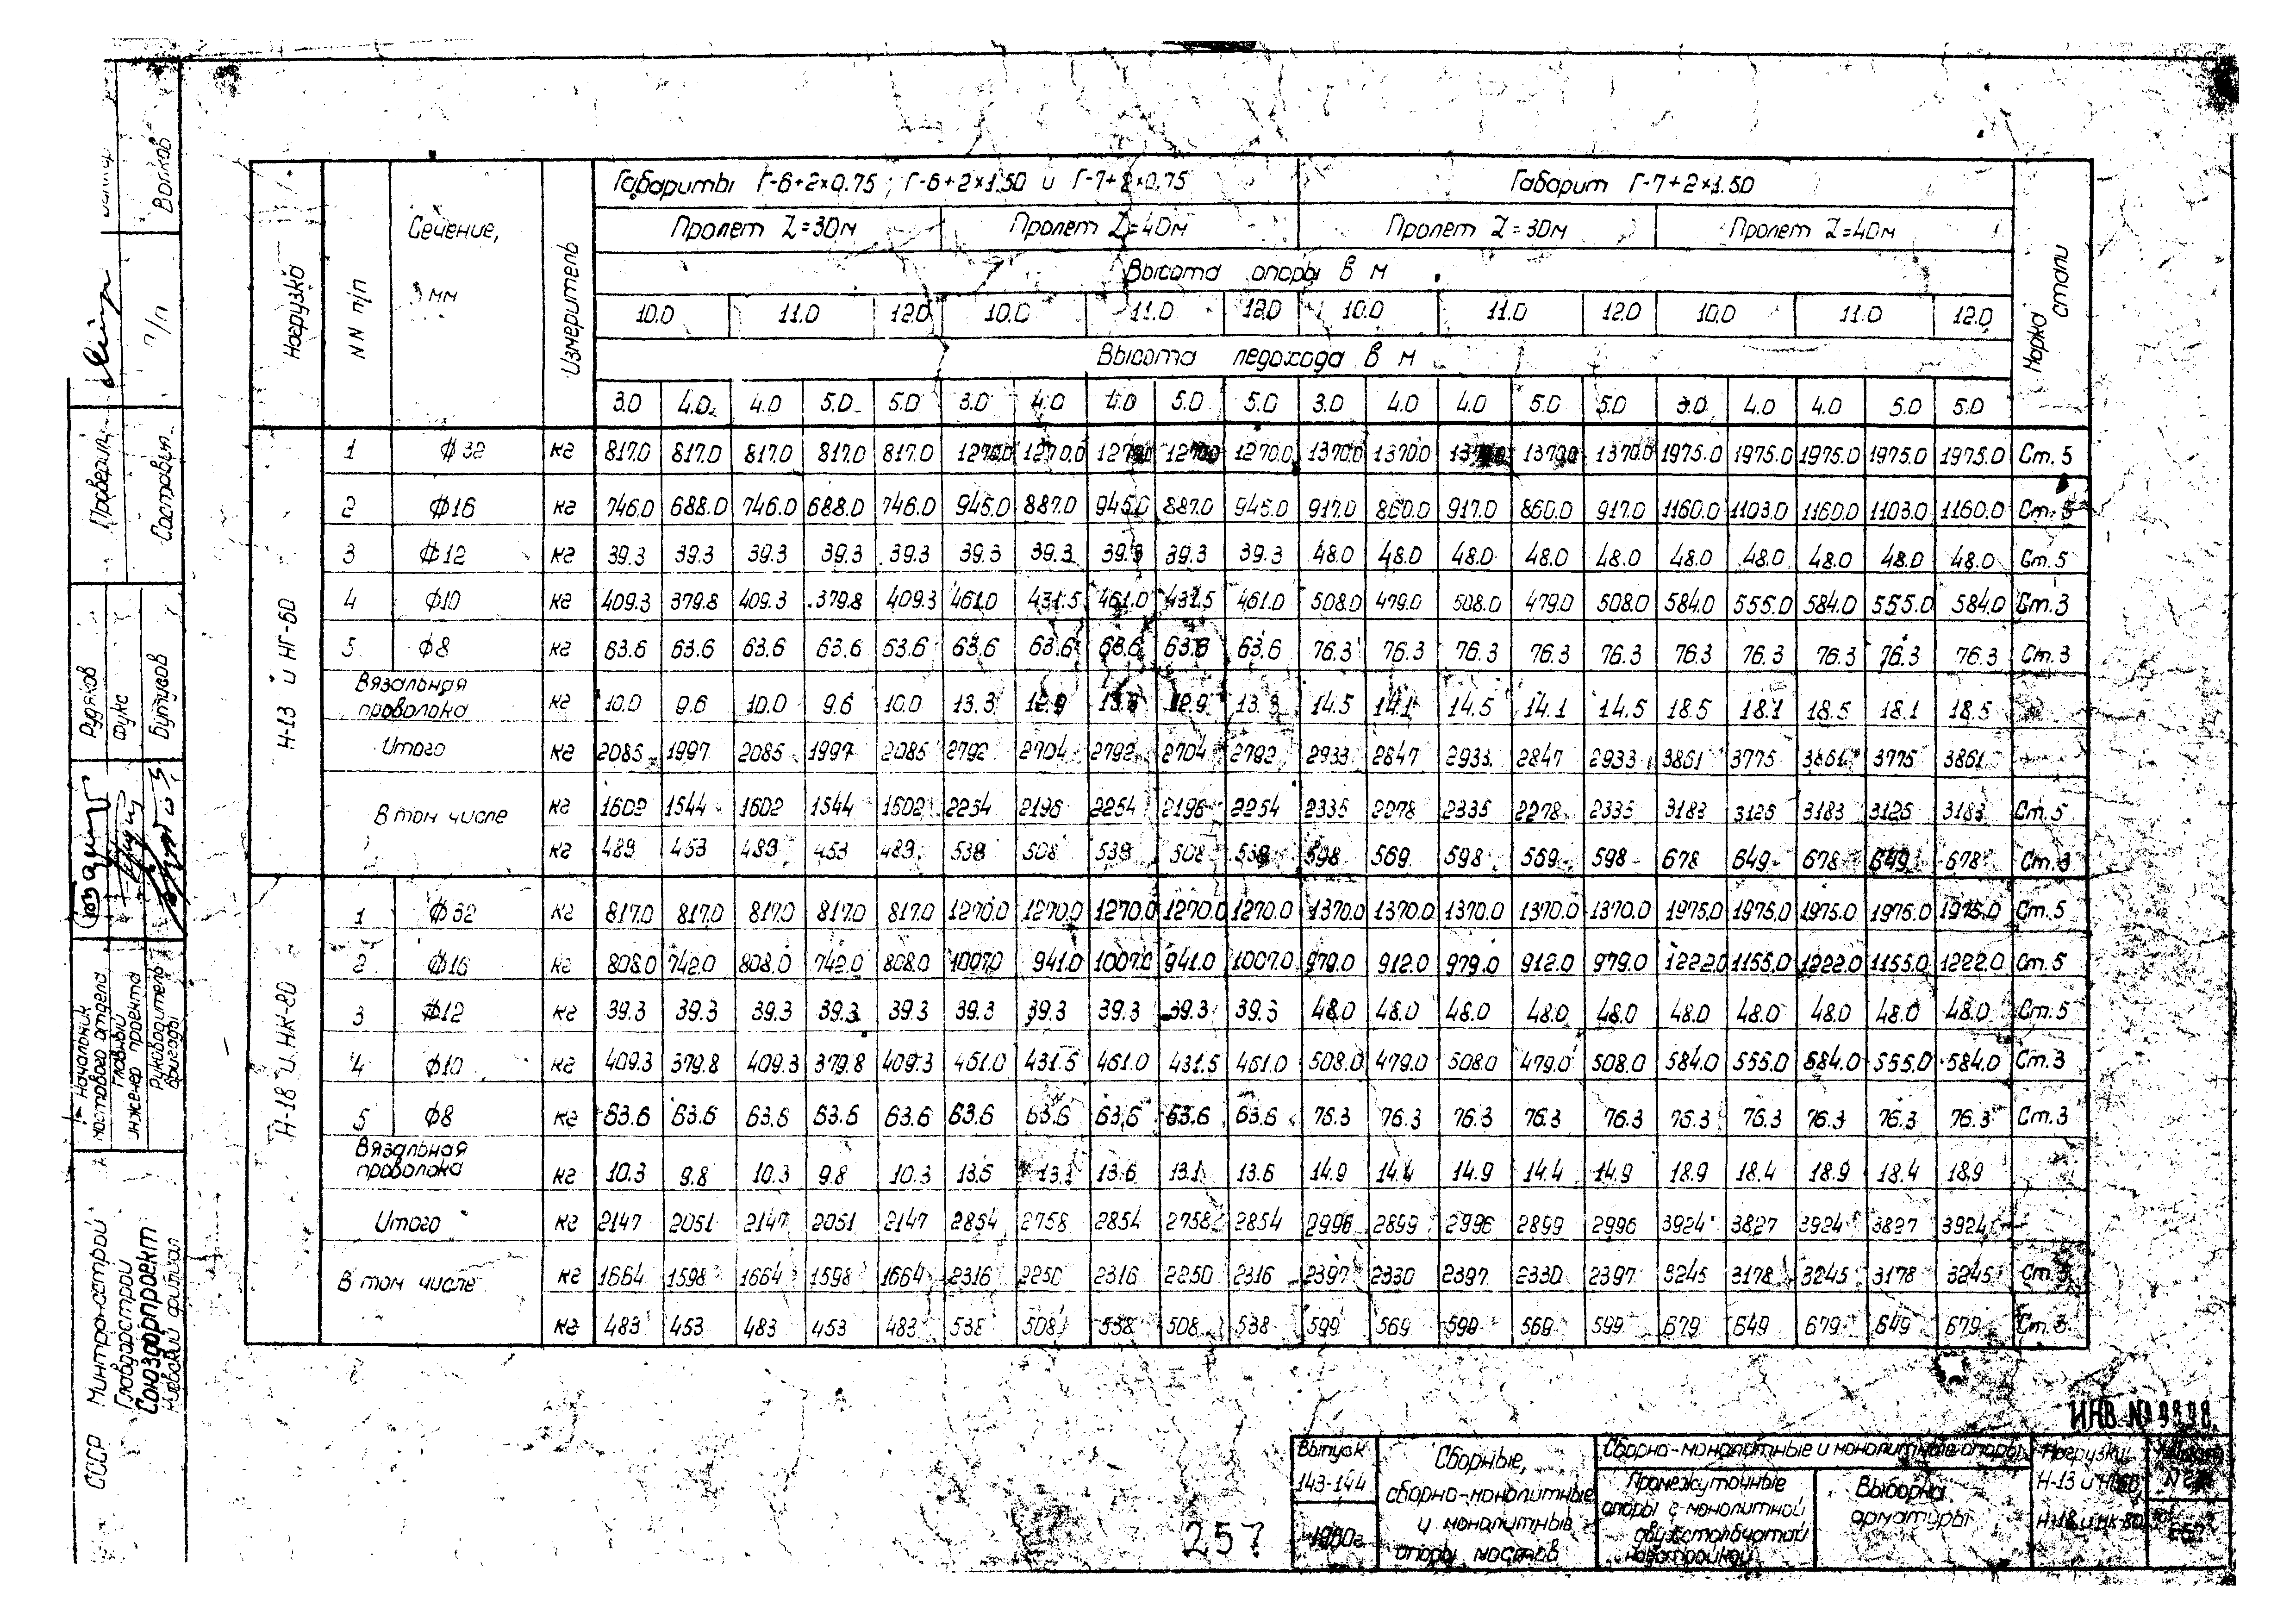 Габариты Г-6+2×0.75; Г-6+2×1.50 и Г-7+2×0.75 Габарит Г-7+2×1.50
Нагрузка NN п/п Сечение, мм Измеритель Марка стали
Пролет L=30м Пролет L=40м Пролет L=30м Пролет L=40м
Высота опоры в м
10.0 11.0 12.0 10.0 11.0 12.0 10.0 11.0 12.0 10.0 11.0 12.0
Высота ледохода в м
3.0 4.0 4.0 5.0 5.0 3.0 4.0 4.0 5.0 5.0 3.0 4.0 4.0 5.0 5.0 3.0 4.0 4.0 5.0 5.0
Н-13 и НГ-60
1 Ф32 кг 817.0 817.0 817.0 817.0 817.0 1270.0 1270.0 1270.0 1270.0 1270.0 1370.0 1370.0 1370.0 1370.0 1370.0 1975.0 1975.0 1975.0 1975.0 1975.0 Ст.5
2 Ф16 кг 746.0 688.0 746.0 688.0 746.0 945.0 887.0 945.0 887.0 945.0 917.0 860.0 917.0 860.0 917.0 1160.0 1103.0 1160.0 1103.0 1160.0 Ст.5
3 Ф12 кг 39.3 39.3 39.3 39.3 39.3 39.3 39.3 39.3 39.3 39.3 48.0 48.0 48.0 48.0 48.0 48.0 48.0 48.0 48.0 48.0 Ст.5
4 Ф10 кг 409.3 379.8 409.3 379.8 409.3 461.0 431.5 461.0 431.5 461.0 508.0 479.0 508.0 479.0 508.0 584.0 555.0 584.0 555.0 584.0 Ст.3
5 Ф8 кг 63.6 63.6 63.6 63.6 63.6 63.6 63.6 63.6 63.6 63.6 76.3 76.3 76.3 76.3 76.3 76.3 76.3 76.3 76.3 76.3 Ст.3
Вязальная
проволока кг 10.0 9.6 10.0 9.6 10.0 13.3 12.9 13.3 12.9 13.3 14.5 14.1 14.5 14.1 14.5 18.5 18.1 18.5 18.1 18.5
Итого кг 2085 1997 2085 1997 2085 2792 2704 2792 2704 2792 2933 2847 2933 2847 2933 3861 3775 3861 3775 3861
В том числе кг 1602 1544 1602 1544 1602 2254 2196 2254 2196 2254 2335 2278 2335 2278 2335 3183 3126 3183 3126 3183 Ст.5
кг 483 453 483 453 483 538 508 538 508 538 598 569 598 569 598 678 649 678 649 678 Ст.3
Н-18 и НК-80
1 Ф32 кг 817.0 817.0 817.0 817.0 817.0 1270.0 1270.0 1270.0 1270.0 1270.0 1370.0 1370.0 1370.0 1370.0 1370.0 1975.0 1975.0 1975.0 1975.0 1975.0 Ст.5
2 Ф16 кг 808.0 742.0 808.0 742.0 808.0 1007.0 941.0 1007.0 941.0 1007.0 979.0 912.0 979.0 912.0 979.0 1222.0 1155.0 1222.0 1155.0 1222.0 Ст.5
3 Ф12 кг 39.3 39.3 39.3 39.3 39.3 39.3 39.3 39.3 39.3 39.3 48.0 48.0 48.0 48.0 48.0 48.0 48.0 48.0 48.0 48.0 Ст.5
4 Ф10 кг 409.3 379.8 409.3 379.8 409.3 461.0 431.5 461.0 431.5 461.0 508.0 479.0 508.0 479.0 508.0 584.0 555.0 584.0 555.0 584.0 Ст.3
5 Ф8 кг 63.6 63.6 63.6 63.6 63.6 63.6 63.6 63.6 63.6 63.6 76.3 76.3 76.3 76.3 76.3 76.3 76.3 76.3 76.3 76.3 Ст.3
Вязальная
проволока кг 10.3 9.8 10.3 9.8 10.3 13.6 13.1 13.6 13.1 13.6 14.9 14.4 14.9 14.4 14.9 18.9 18.4 18.9 18.4 18.9
Итого кг 2147 2051 2147 2051 2147 2854 2758 2854 2758 2854 2996 2899 2996 2899 2996 3924 3827 3924 3827 3924
В том числе кг 1664 1598 1664 1598 1664 2316 2250 2316 2250 2316 2397 2330 2397 2330 2397 3245 3178 3245 3178 3245 Ст.5
кг 483 453 483 453 483 538 508 538 508 538 599 569 599 569 599 679 649 679 649 679 Ст.3
Проверил
Составил
п/п
Волков
Рудяков
Фукс
Бутузов
Начальник
мостового отдела
Главный
инженер проекта
Руководитель
бригады
СССР Минтрансстрой
Главдорстрой
Союздорпроект
Киевский филиал
ИНВ №9898
257
Выпуск
143-144
1960г
Сборные,
сборно-монолитные
и монолитные
опоры мостов
Сборно-монолитные и монолитные опоры
Промежуточные
опоры с монолитной
двухстолбчатой
надстройкой
Выборка
арматуры
Нагрузки
Н-13 и НГ-60,
Н-18 и НК-80